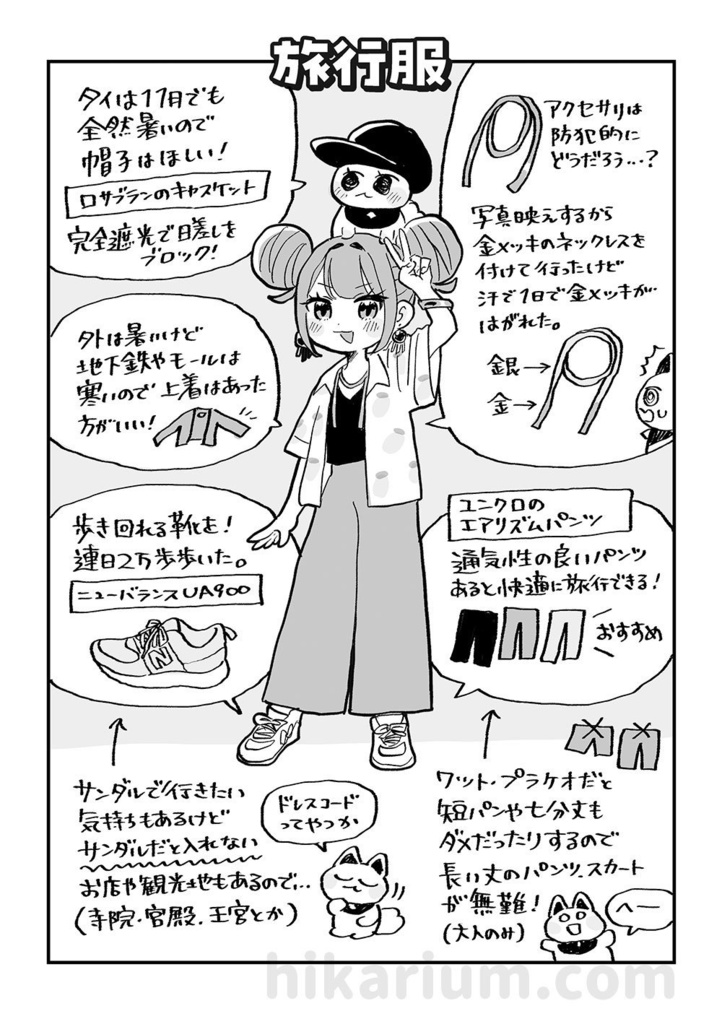 旅行服
タイは11月でも
全然暑いので
帽子はほしい！
ロサブランのキャスケット
完全遮光で日差しを
ブロック！
アクセサリは
防犯的に
どうだろう…？
写真映えするから
金メッキのネックレスを
付けて行ったけど
汗で1日で金メッキが
はがれた。
銀→
金→
外は暑いけど
地下鉄やモールは
寒いので上着はあった
方がいい！
歩き回れる靴を！
連日2万歩歩いた。
ニューバランスUA900
N
ユニクロの
エアリズムパンツ
通気性の良いパンツ
あると快適に旅行できる！
おすすめ
サンダルで行きたい
気持ちもあるけど
サンダルだと入れない
お店や観光地もあるので…
(寺院・宮殿・王宮とか)
ドレスコード
ってやつか
ワット・プラケオだと
短パンや七分丈も
ダメだったりするので
長い丈のパンツ、スカート
が無難！
(大人のみ)
へー
hikarium.com